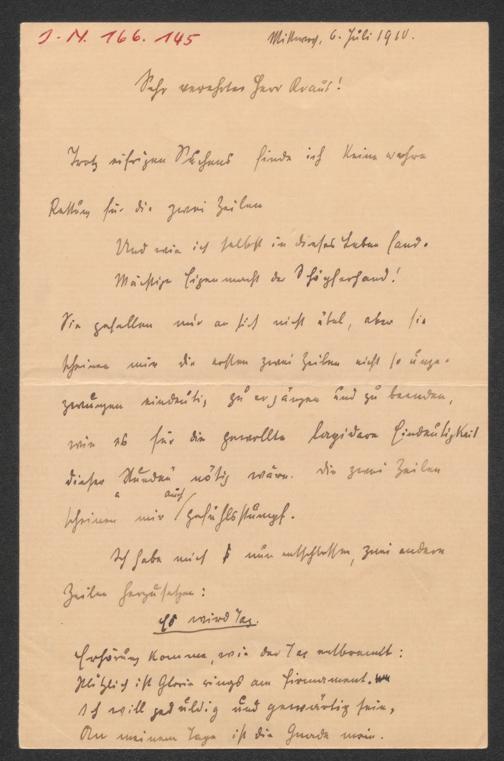 I.N. 166.145
Mittwoch, 6. Juli 1910.
Sehr verehrter Herr Kraus!
Trotz eifrigen Suchens finde ich keine wahre
Rettung für die zwei Zeilen
Und wie ich selbst in dieses Leben fand.
Mächtige Eigenmacht der Schöpferhand!
Sie gefallen mir an sich nicht übel, aber sie
scheinen mir die ersten zwei Zeilen nicht so unge-
zwungen eindeutig zu ergänzen und zu beenden,
wie es für die gewollte lapidare Eindeutigkeit
dieser nötig wäre. Die zwei Zeilen
scheinen mir auch gefühlsstumpf.
Ich habe mich nun entschlossen, zwei andere
Zeilen herzusetzen:
Es wird Tag.
Erhörung komme, wie der Tag entbrennt:
Plötzlich ist Glorie rings am Firmament.
Ich will geduldig und gewärtig sein,
An meinem Tage ist die Gnade mein.